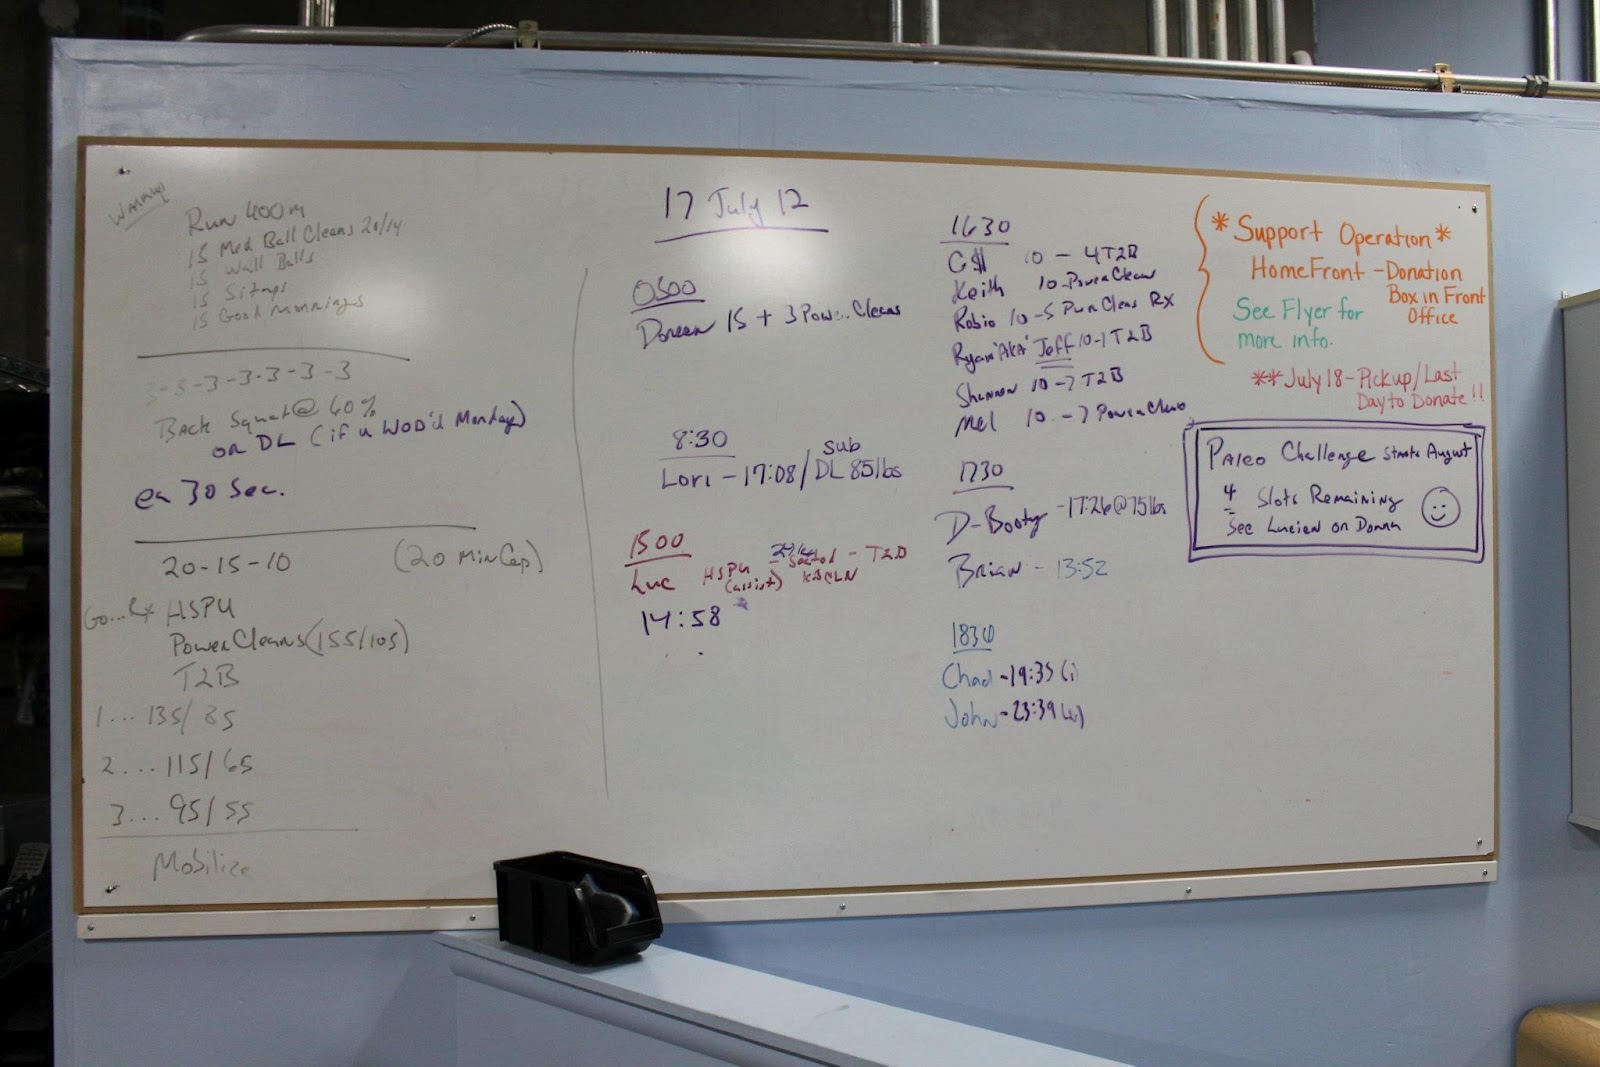 Warmup
Run 400m
15 Med Ball Cleans 20/14
15 Wall Balls
15 Situps
15 Good Mornings
3-3-3-3-3-3-3
Back Squat @ 60%
or DL (if u WOD'd Monday)
ea 30 Sec.
20-15-10 (20 Min Cap)
Go...Rx HSPU
PowerCleans (155/105)
T2B
1... 135/85
2... 115/65
3... 95/55
Mobilize
17 July 12
0500
Doreen 15 + 3 Power Cleans
8:30
Lori - 17:08 / sub DL 85lbs
1500
Luc HSPU (assist) - KBCLN - T2B
14:58
1630
C$ 10 - 4 T2B
Keith 10-PowerClean
Robio 10-5 Pwr Cleans RX
Ryan 'AKA' Jeff 10-1 T2B
Shannon 10-7 T2B
Mel 10 - 7 PowerCleans
1730
D-Booty - 17:26 @ 75lbs
Brian - 13:52
1830
Chad - 19:35 (1)
John - 23:39
* Support Operation *
HomeFront - Donation
Box in Front
Office
See Flyer for
more info.
** July 18 - Pickup/Last
Day to Donate!!
Paleo Challenge Starts August
4 Slots Remaining
See Lucien or Donna